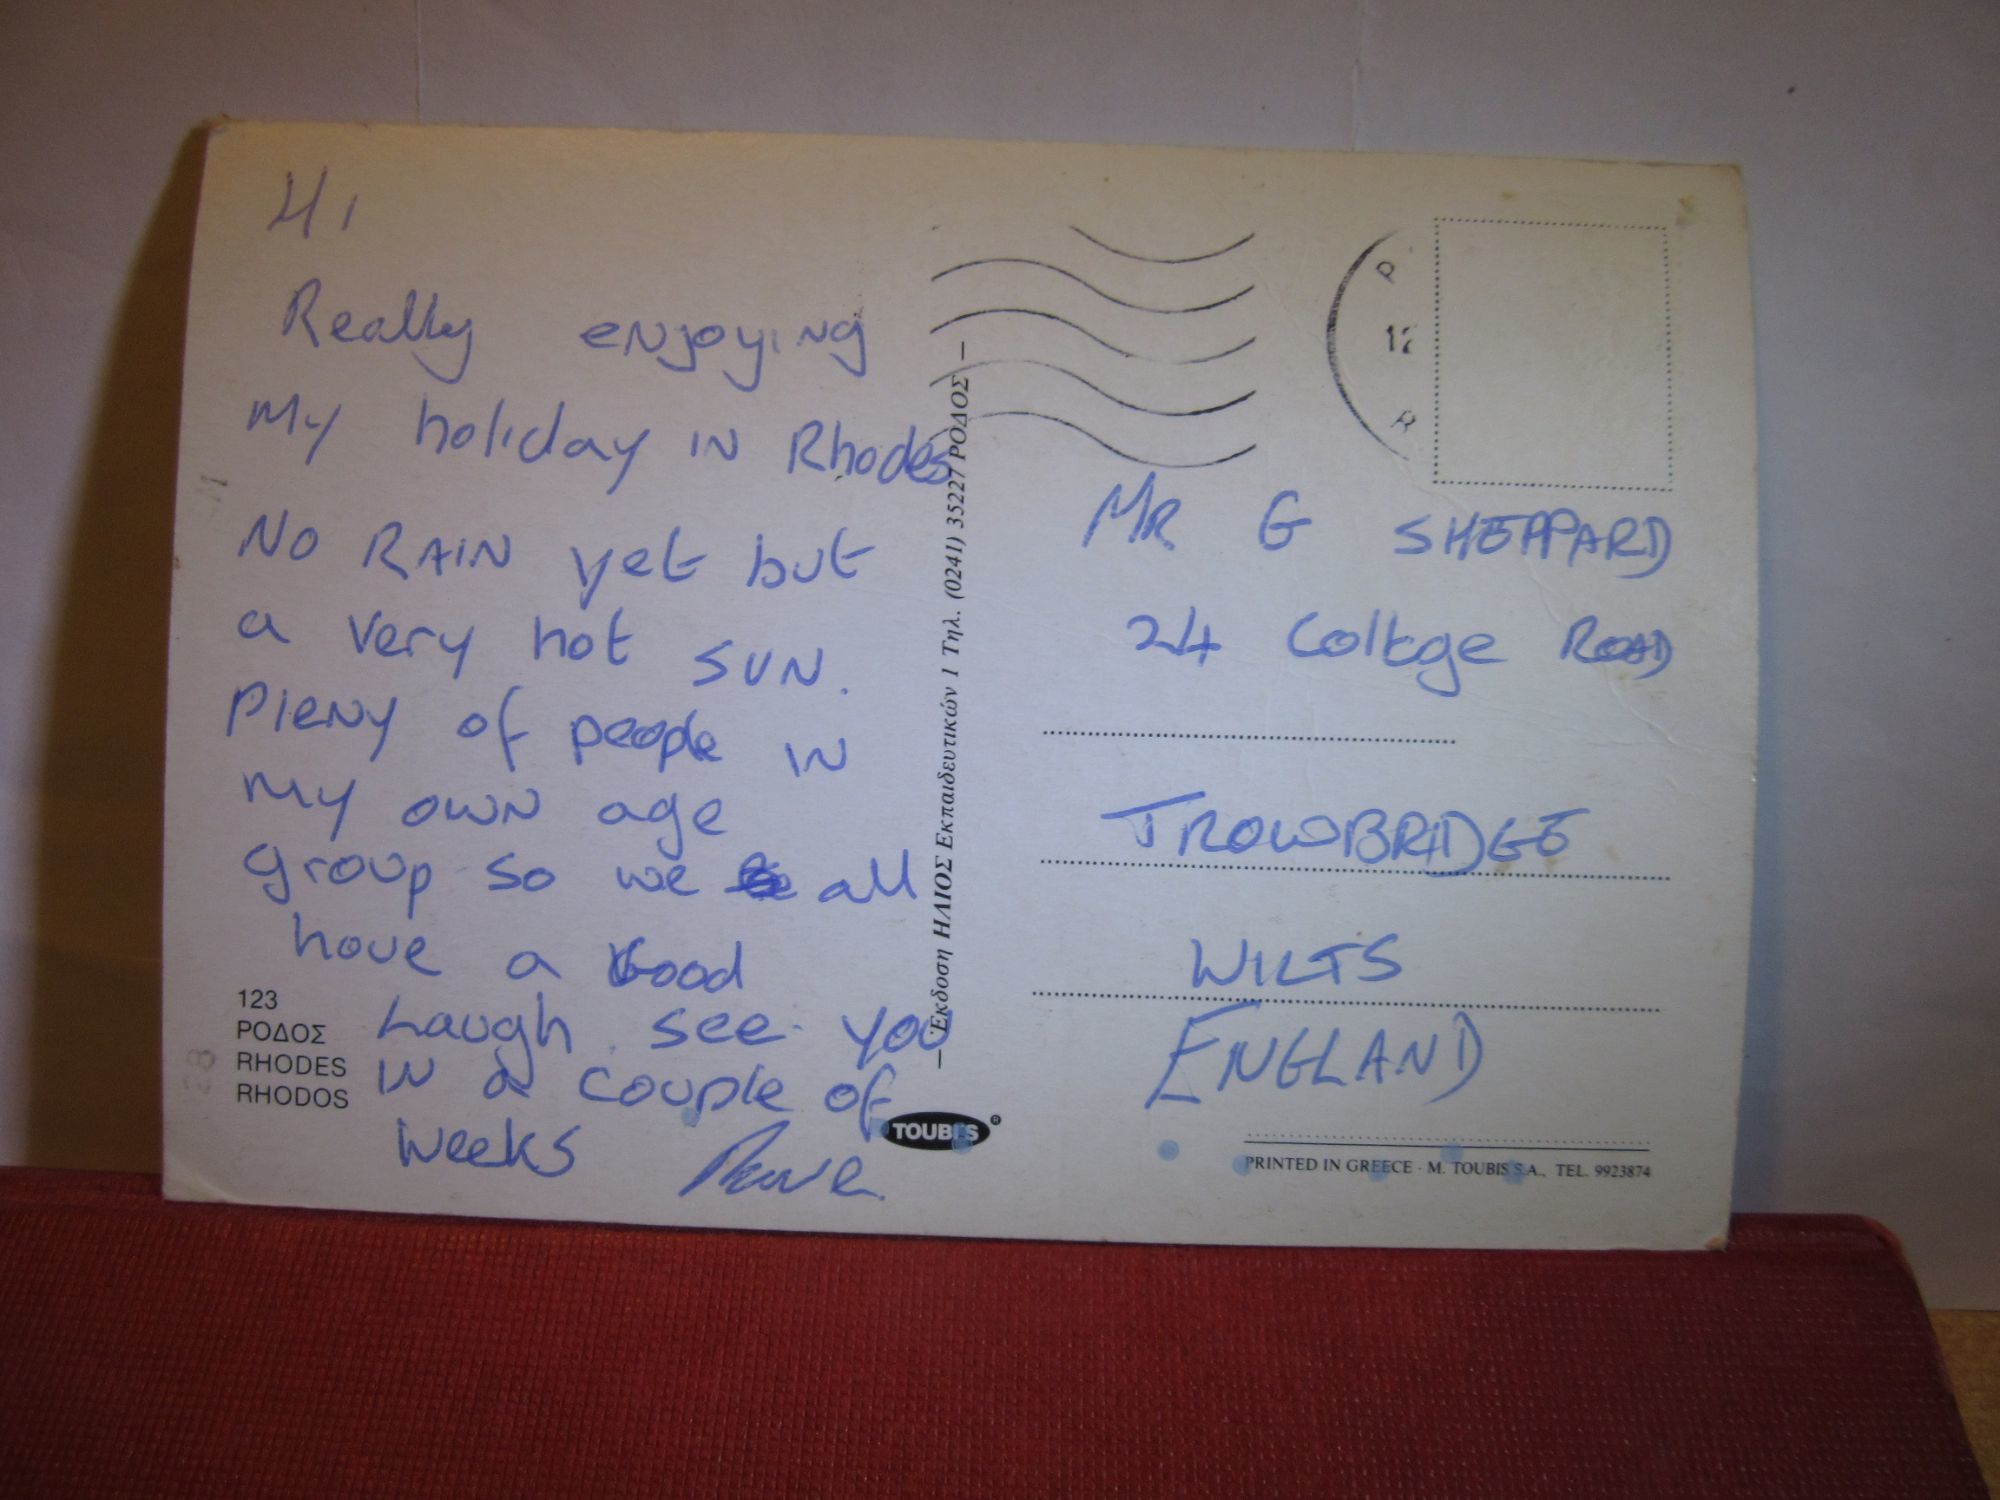 Hi
Really enjoying
My holiday IN Rhodes
No RAIN yet but
a very hot SUN.
Pleny of people IN
my own age
group so we all
have a Good
Laugh. see you
IN a couple of
weeks
123
ΡΟΔΟΣ
RHODES
RHODOS
— Έκδοση ΗΛΙΟΣ Εκπαιδευτικών 1 Τηλ. (0241) 35227 ΡΟΔΟΣ —
TOUBIS ®
P
12
R
MR G SHEPPARD
24 College ROAD
TROWBRIDGE
WILTS
ENGLAND
PRINTED IN GREECE · M. TOUBIS S.A., TEL. 9923874